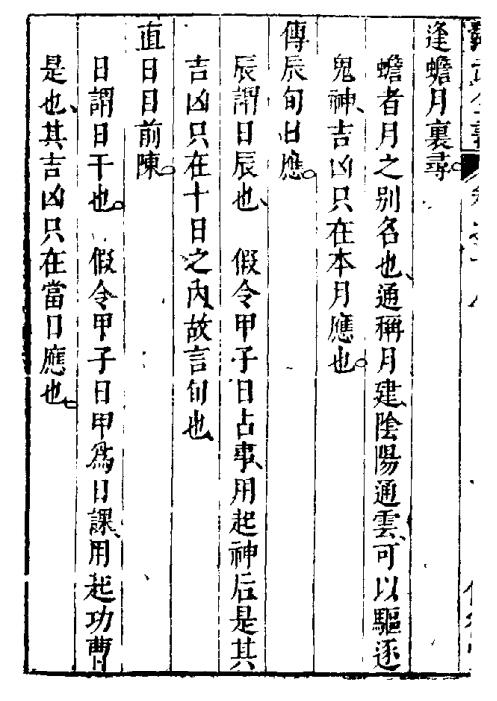 逢蟾月裏尋。
蟾者月之别名也、通稱月建、陰陽通雲、可以驅逐
鬼神、吉凶只在本月應也。
傳辰旬日應。
辰謂日辰也、　假令甲子日占事、用起神后是其
吉凶只在十日之内、故言旬也、
直日目前陳。
日謂日干也。　假令甲子日甲爲日課、用起功曹
是也、其吉凶只在當日應也。